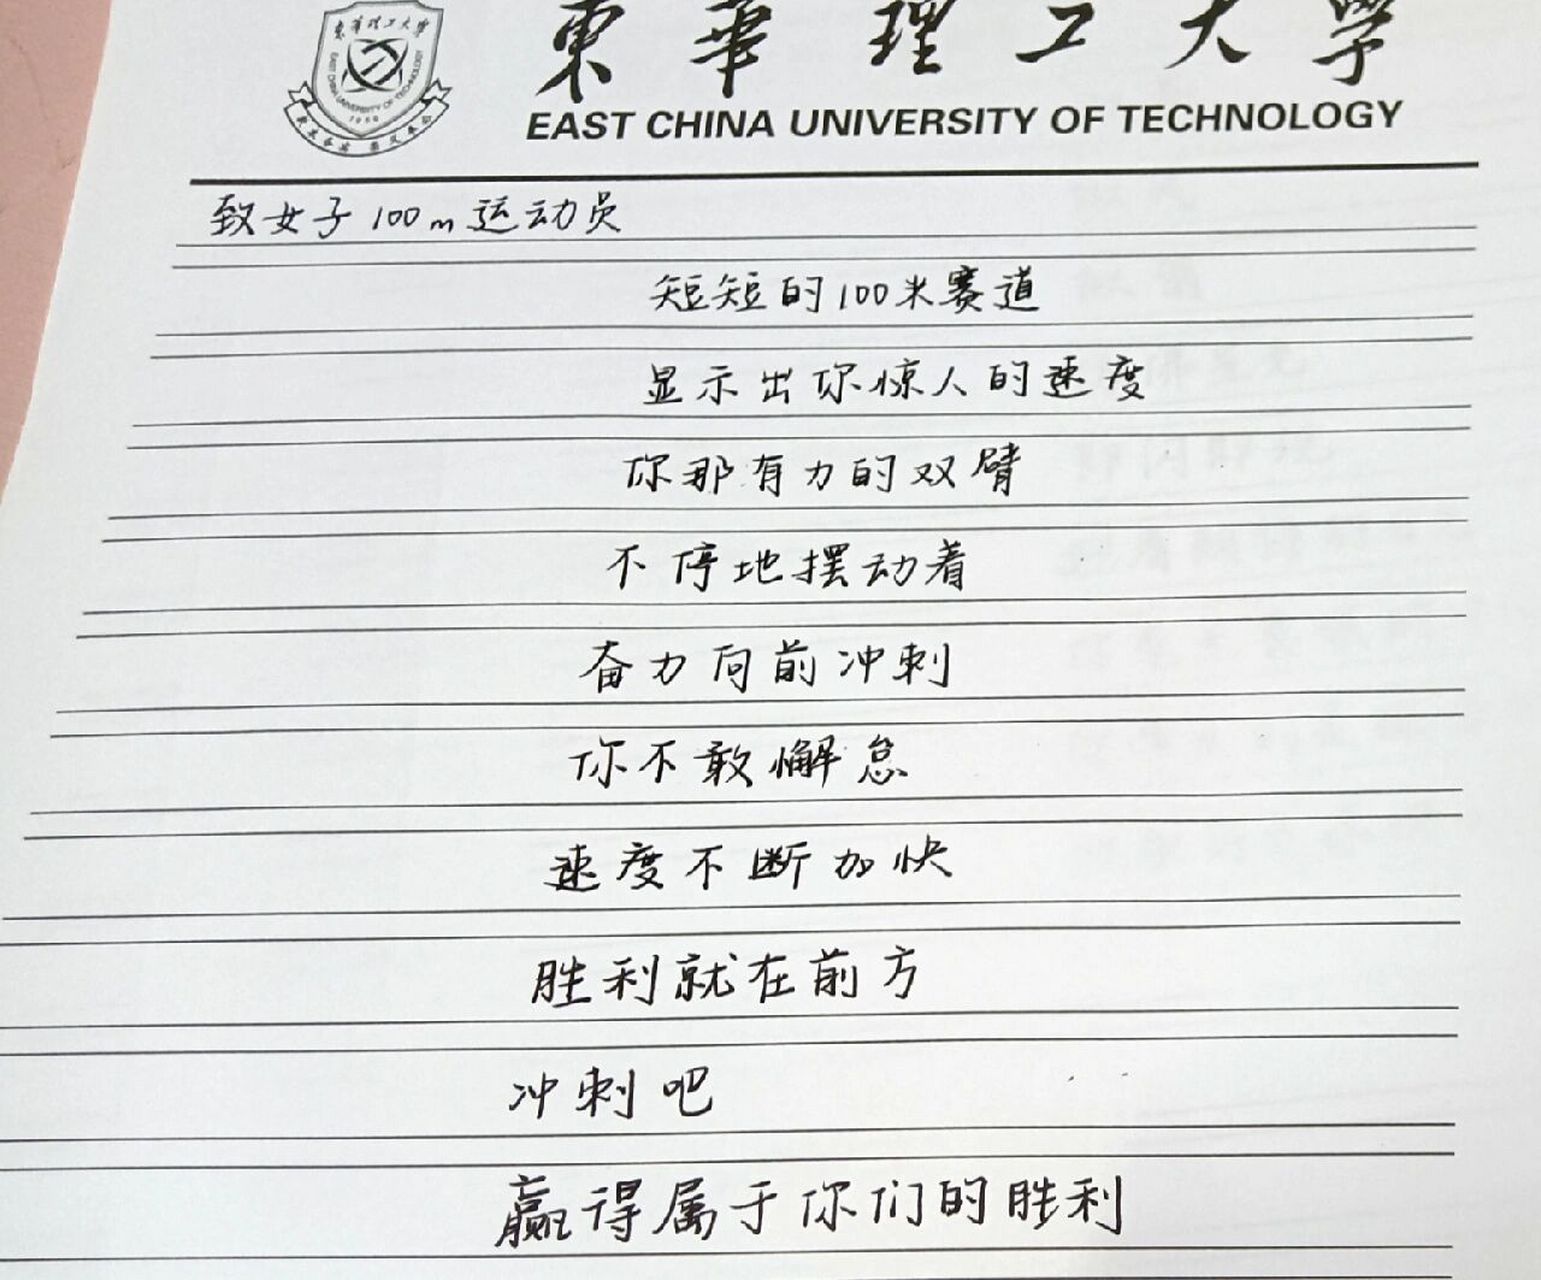 東華理工大學
EAST CHINA UNIVERSITY OF TECHNOLOGY
東華理工大学
EAST CHINA UNIVERSITY OF TECHNOLOGY
1956
致女子100m运动员
短短的100米赛道
显示出你惊人的速度
你那有力的双臂
不停地摆动着
奋力向前冲刺
你不敢懈怠
速度不断加快
胜利就在前方
冲刺吧
赢得属于你们的胜利